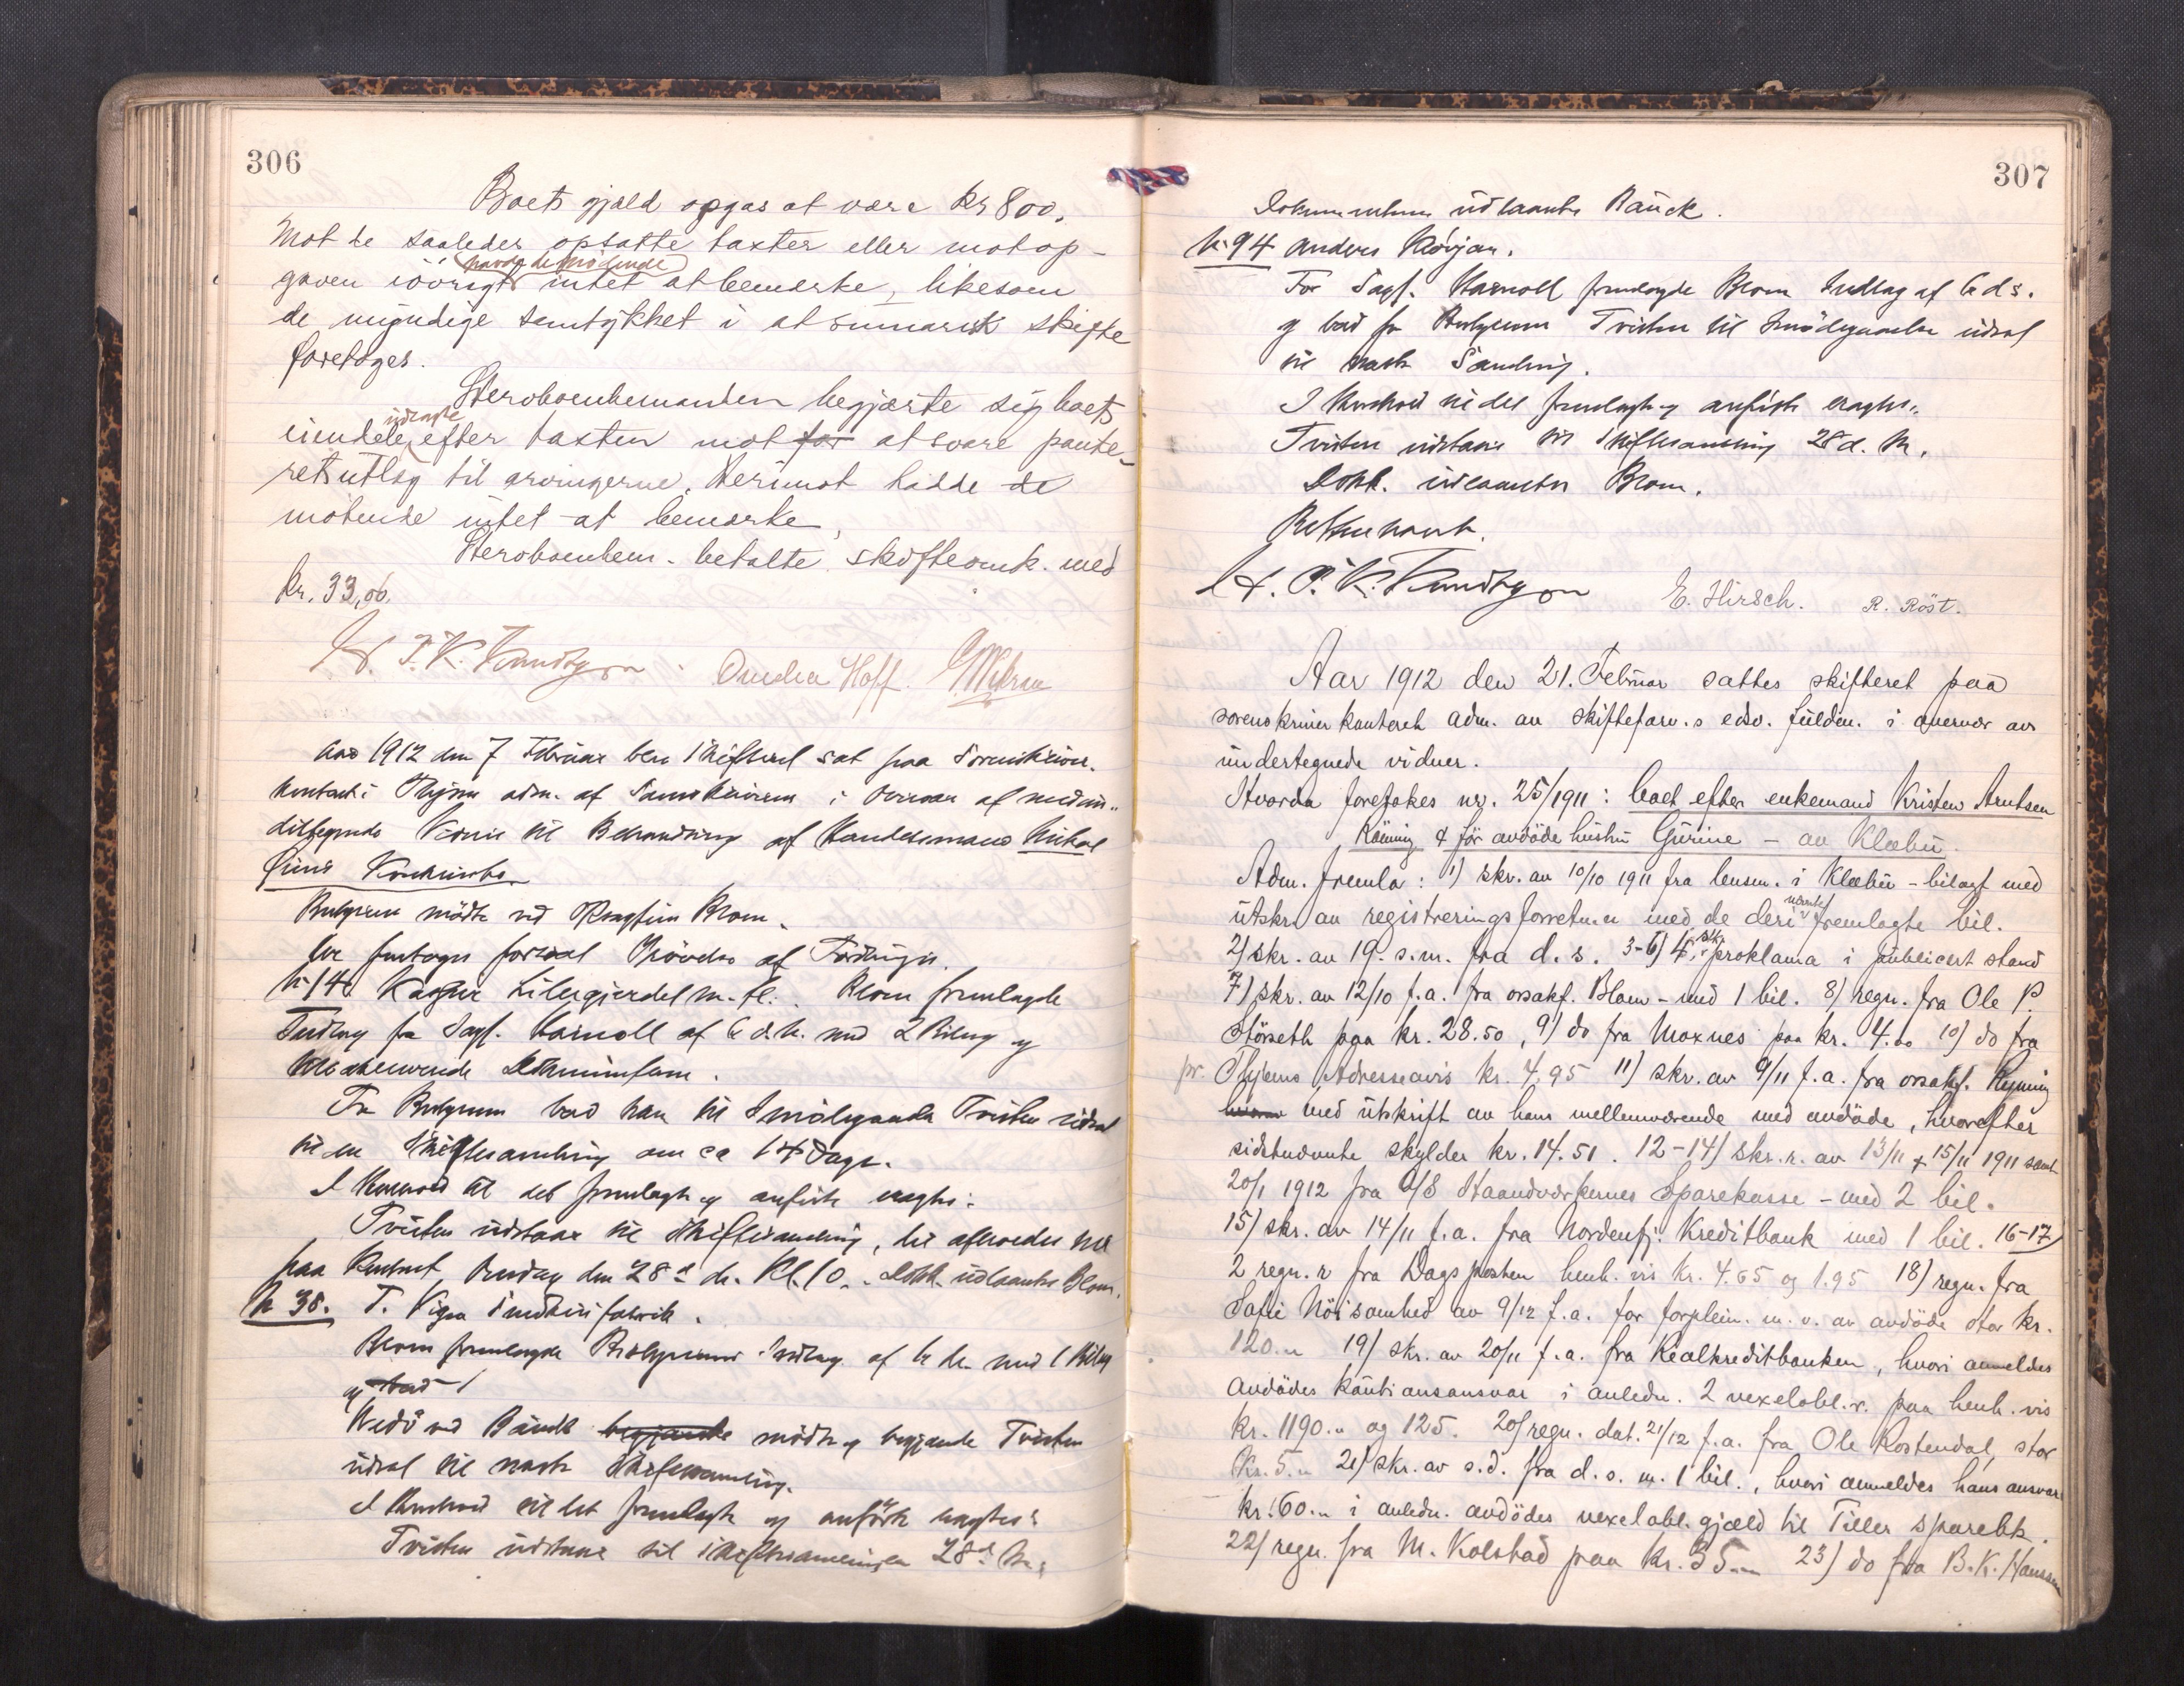 306
Boets gjæld opgas at være kr 800.
Mot de saaledes opsatte taxter eller mot op-
havde de mødende
gaven iøvrigt intet at bemerke, likesom
de myndige samtykket i at summarisk skifte
foretages.
Sterboenkemanden begjærte sig boets
utlagte
eiendele efter taxten mot for at svare pante-
retsutlæg til arvingerne. Herimot hadde de
møtende intet at bemerke.
Sterboenkem. betalte skifteomk. med
kr. 33,06.
P. K. Hoff.
Aar 1912 den 7 Februar blev Skifteret sat paa Sorenskriver-
kontoret i adm. af Sorenskriveren i Overvær af nedenun-
dertegnede Vidner til Behandling af Handelsmand Nikol
Konkursbo
mødte ved Blom.
Der foretoges forsaavidt Prøvelse af Fordringer.
No 14. Kasper Lilergjerdet m. fl. Blom fremlagde
Indlæg fra Sagf. Harnoll af 6 d.M. med 2 Bilag og
bad han til Imødegaaelse Tvisten udsat
til en Skiftesamling om ca 14 Dage.
I Henhold til det fremlagte og anførte vragtes:
Tvisten udstaar til Skiftesamling, der afholdes her
paa Kontoret Onsdag den 28de ds. Kl. 10. Dokk. udlaantes Blom.
No 38. T.
Blom fremlagde Indlæg af 6 ds. med 1 Bilag
og bad
ved mødte og begjærte Tvisten
udsat til næste Skiftesamling.
I Henhold til det fremlagte og anførte vragtes:
Tvisten udstaar til Skiftesamlingen 28d. M.
307
Dokumenterne udlaantes Bauck.
No 94 Anders
For Sagf. Harnoll fremlagde Blom Indlæg af 6 ds.
og bad for Tvisten til Imødegaaelse udsat
til næste Samling.
I Henhold til det fremlagte og anførte vragtes:
Tvisten udstaar til Skiftesamling 28 d. M.
Dokk. udlaantes Blom.
Retten hævet.
P. K. E. Hirsch. R. Röst.
Aar 1912 den 21. Februar sattes skifteret paa
sorenskriverkontoret adm. av skifteforv.s edsv. fuldm. i overvær av
undertegnede vidner.
Hvorda foretokes nr. 25/1911: boet efter enkemand Kristen Arntsen
Rönning & før avdöde hustru Gurine – av Klæbu.
Adm. fremla: 1) skr. av 10/10 1911 fra lensm. i Klæbu – bilagt med
nævnte
utskr. av registreringsforretn.n med de deri fremlagte bil.
2) skr. av 19. s.m. fra d. s. 3-6) 4 stk. proklama i publicert stand
7) skr. av 12/10 f.a. fra orsakf. Blom – med 1 bil. 8) regn. fra Ole P.
Störseth paa kr. 28.50, 9) do fra Moxnes paa kr. 4.00 10) do fra
pr. Thjems Adresseavis kr. 4.95 11) skr. av 9/11 f.a. fra orsakf.
med utskrift av hans mellemværende med avdöde, hvorefter
sidstnævnte skylder kr. 14.51. 12-14) skr.r. av 13/11 & 15/11 1911 samt
20/1 1912 fra A/S Haandverkernes Sparekasse – med 2 bil.
15) skr. av 14/11 f.a. fra Nordenfj. Kreditbank med 1 bil. 16-17)
2 regn.r fra Dagsposten henh. vis kr. 4.65 og 1.95 18) regn. fra
Sofie Nöisomhed av 9/12 f.a. for forplein. m. v. av avdöde stor kr.
120.– 19) skr. av 20/11 f.a. fra Realkreditbanken, hvori anmeldes
avdödes kautionsansvar i anledn. 2 vexelobl.r. paa henh. vis
kr. 1190.– og 125. 20) regn. dat. 21/12 f.a. fra Ole Rostendal, stor
kr. 5.– 21) skr. av s.d. fra d. s. m. 1 bil., hvori anmeldes hans ansvar
kr. 60.– i anledn. avdödes vexelobl. gjæld til Tiller sparebk.
22) regn. fra M. Kolstad paa kr. 35.– 23) do fra B. K. Hanssen